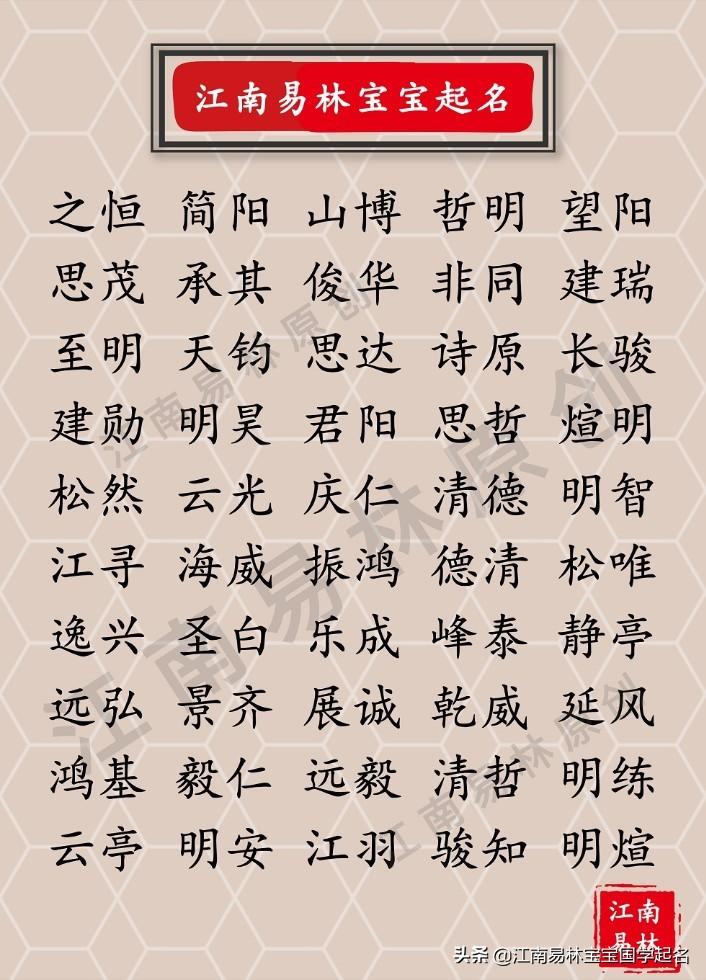 江南易林宝宝起名
之恒 简阳 山博 哲明 望阳
思茂 承其 俊华 非同 建瑞
至明 天钧 思达 诗原 长骏
建勋 明昊 君阳 思哲 煊明
松然 云光 庆仁 清德 明智
江寻 海威 振鸿 德清 松唯
逸兴 圣白 乐成 峰泰 静亭
远弘 景齐 展诚 乾威 延风
鸿基 毅仁 远毅 清哲 明练
云亭 明安 江羽 骏知 明煊
江南易林原创
江南易林原创
江南易林原创
江南
易林
头条 @江南易林宝宝国学起名